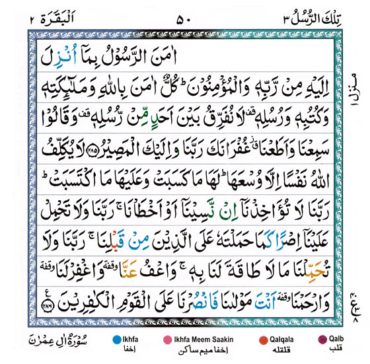 تِلْكَ الرُّسُلُ ٣ ٥٠ اَلْبَقَرَة ٢
اٰمَنَ الرَّسُوْلُ بِمَاۤ اُنْزِلَ
اِلَيْهِ مِنْ رَّبِّهٖ وَالْمُؤْمِنُوْنَ ؕ كُلٌّ اٰمَنَ بِاللّٰهِ وَمَلٰٓئِكَتِهٖ
وَكُتُبِهٖ وَرُسُلِهٖ قف لَا نُفَرِّقُ بَيْنَ اَحَدٍ مِّنْ رُّسُلِهٖ قف وَقَالُوْا
سَمِعْنَا وَاَطَعْنَا ق غُفْرَانَكَ رَبَّنَا وَاِلَيْكَ الْمَصِيْرُ ﴿٢٨٥﴾ لَا يُكَلِّفُ
اللّٰهُ نَفْسًا اِلَّا وُسْعَهَا ؕ لَهَا مَا كَسَبَتْ وَعَلَيْهَا مَا اكْتَسَبَتْ ؕ
رَبَّنَا لَا تُؤَاخِذْنَاۤ اِنْ نَّسِيْنَاۤ اَوْ اَخْطَاْنَا ۚ رَبَّنَا وَلَا تَحْمِلْ
عَلَيْنَاۤ اِصْرًا كَمَا حَمَلْتَهٗ عَلَى الَّذِيْنَ مِنْ قَبْلِنَا ۚ رَبَّنَا وَلَا
تُحَمِّلْنَا مَا لَا طَاقَةَ لَنَا بِهٖ ۚ وَاعْفُ عَنَّا وقفة وَاغْفِرْ لَنَا وقفة
وَارْحَمْنَا وقفة اَنْتَ مَوْلٰىنَا فَانْصُرْنَا عَلَى الْقَوْمِ الْكٰفِرِيْنَ ﴿٢٨٦﴾
منزل ١
سُوْرَةُ اٰلِ عِمْرٰنَ
Ikhfa Ikhfa Meem Saakin Qalqala Qalb
اخفا اخفا میم ساکن قلقله قلب